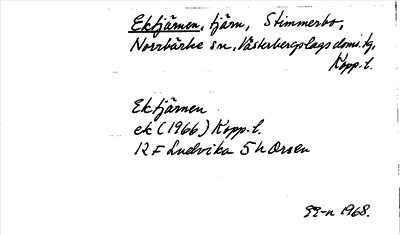 Ektjärnen, tjärn, Stimmerbo,
Norrbärke sn, Västerbergslags doms. tg,
Kopp. l.
Ektjärnen
ek (1966) Kopp. l.
12 F Ludvika 5 h Orsen
1968.